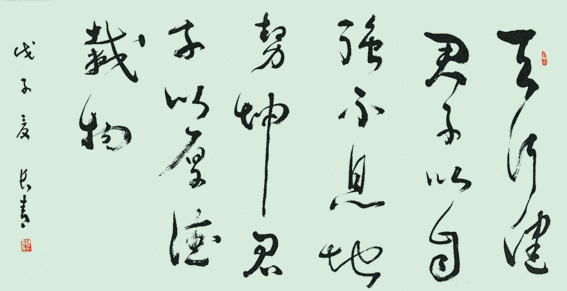 天行健
君子以自
強不息地
勢坤君
子以厚德
載物
戊子夏長青